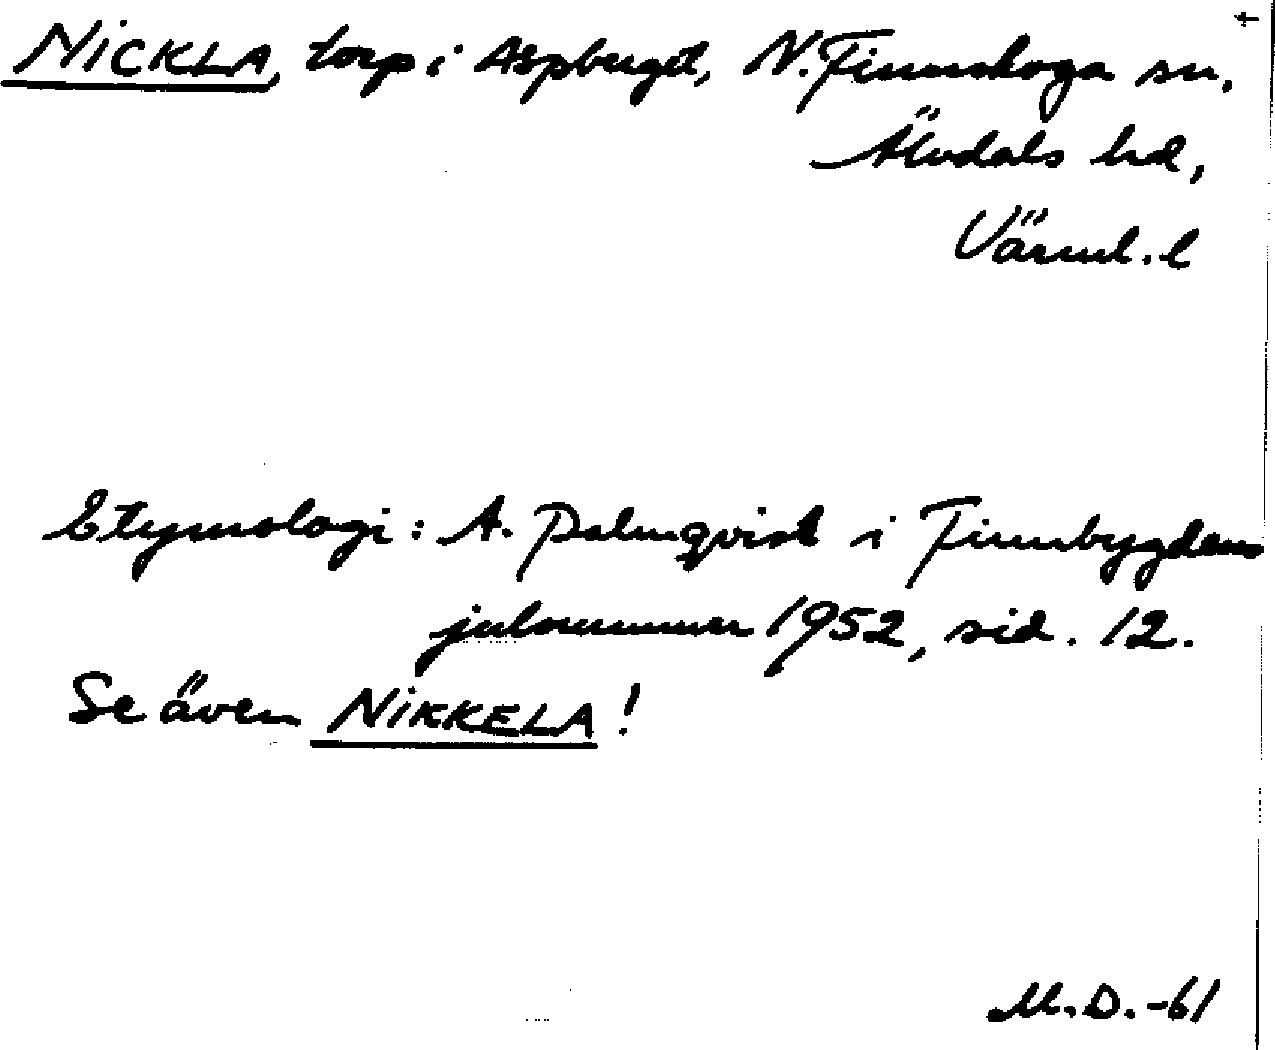 NICKLA, torp i Aspberget, N. Finnskoga sn,
Älvdals hd,
Värml. l
Etymologi: A. Palmqvist i Finnbygdens
julnummer 1952, sid. 12.
Se även NIKKELA!
M.D. -61